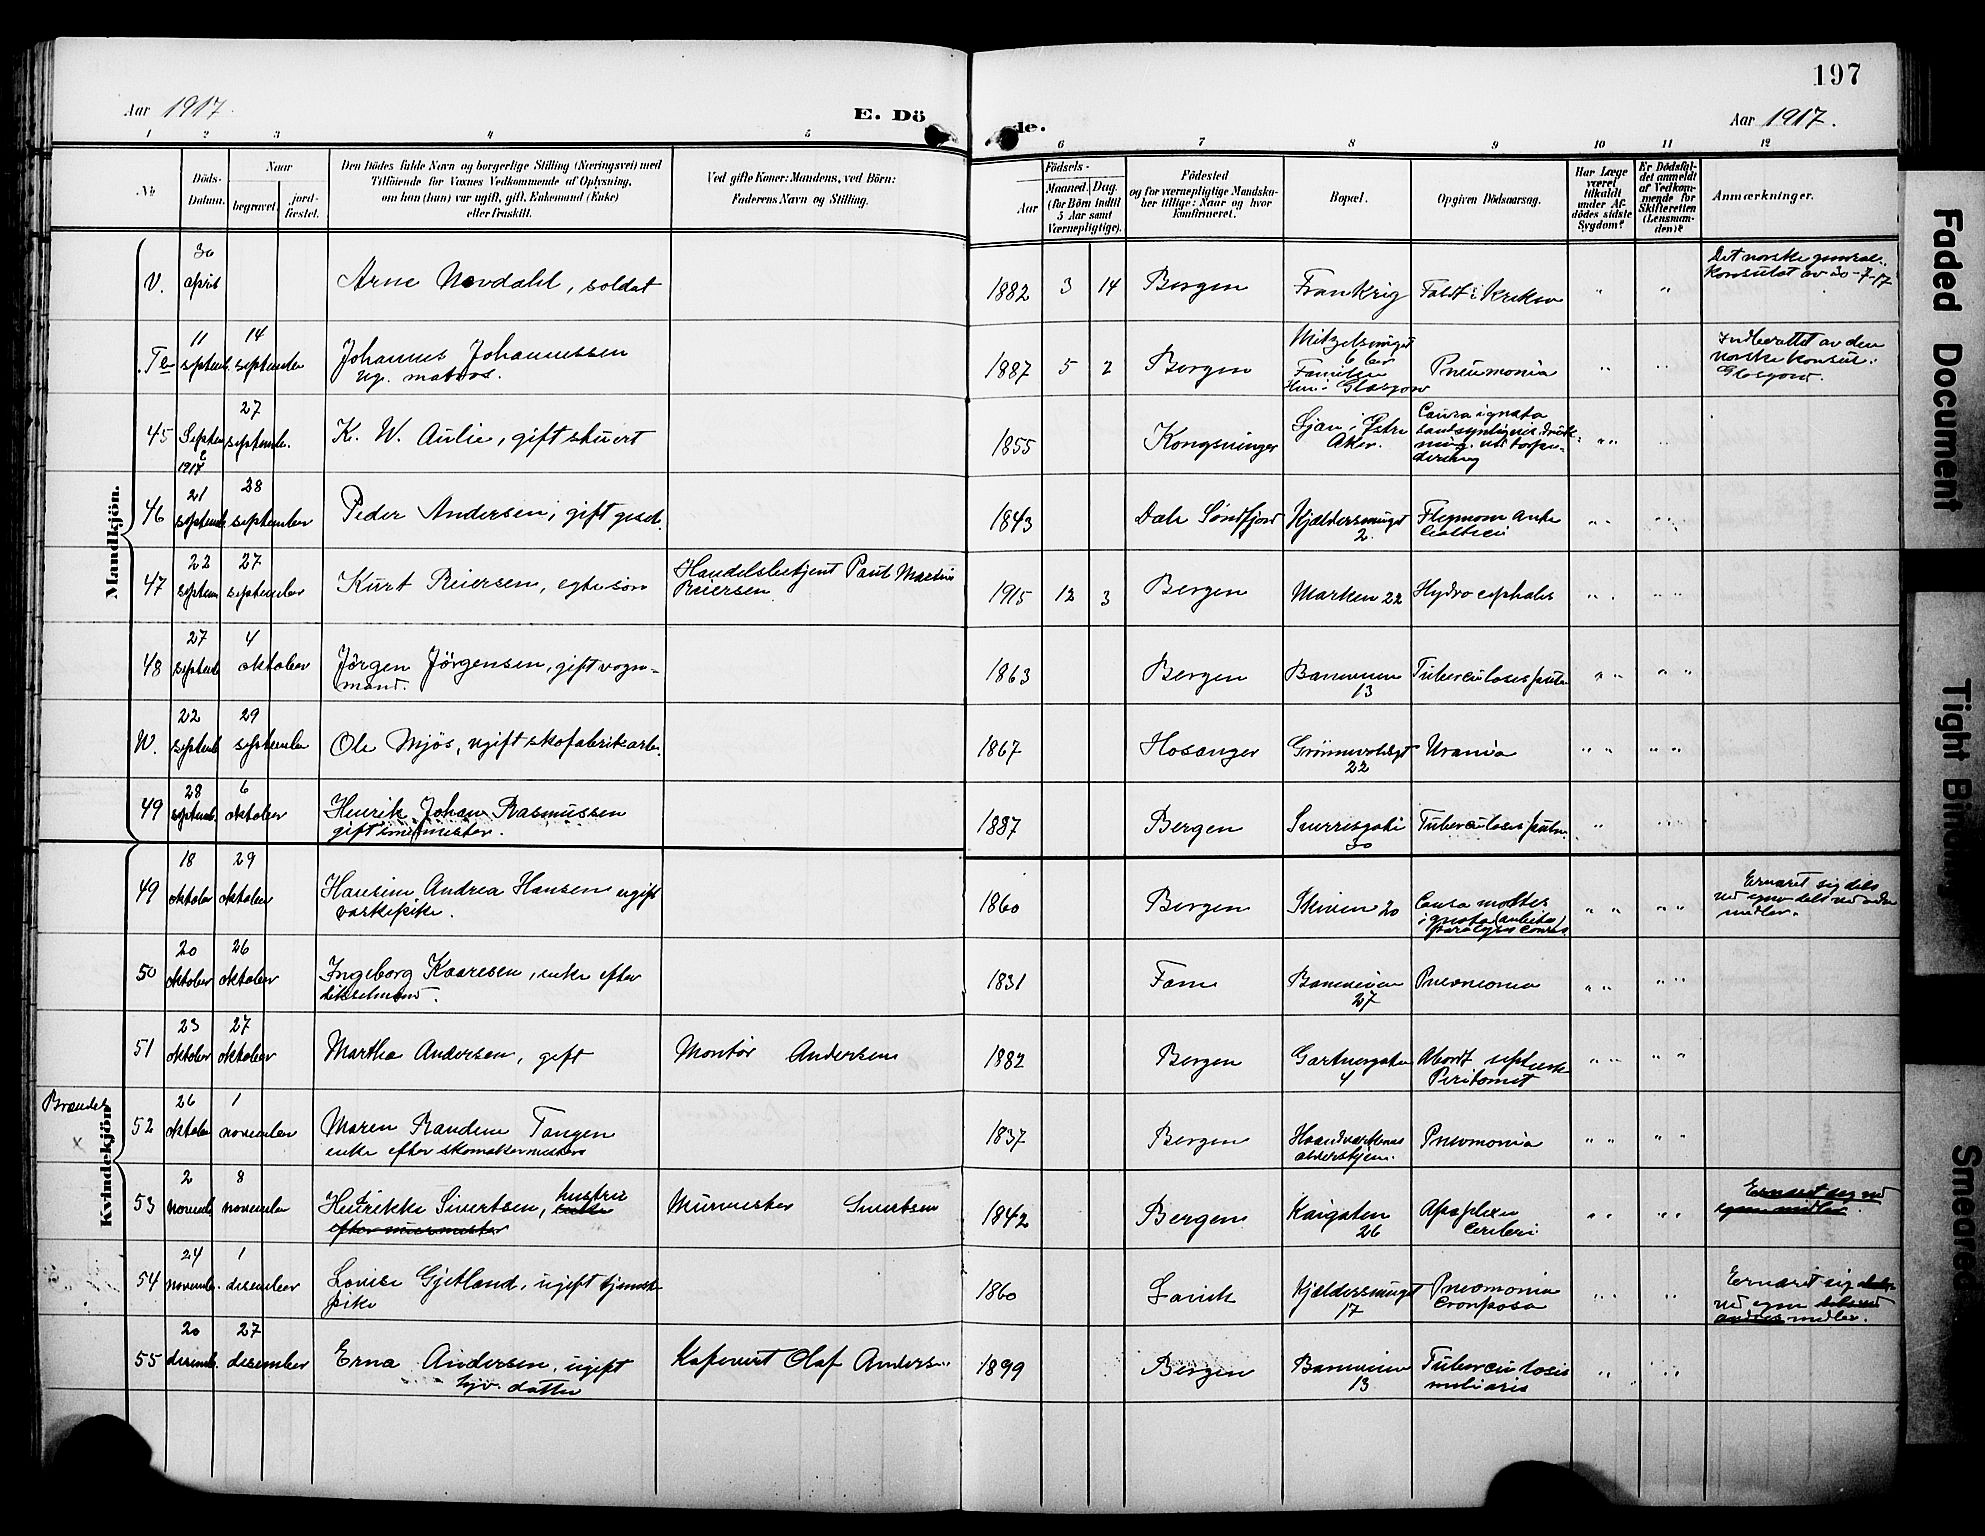 197
Aar 1917.
E. Dö
de.
Aar 1917.
1 2 3 4 5
6 7 8 9 10 11 12
No.
Döds-
Datum.
Naar
begravet.
jord-
fæstet.
Den Dödes fulde Navn og borgerlige Stilling (Næringsvei) med
Tilföiende for Voxnes Vedkommende af Oplysning,
om han (hun) var ugift, gift, Enkemand (Enke)
eller fraskilt.
Ved gifte Koner: Mandens, ved Börn:
Faderens Navn og Stilling.
Födsels-
Aar
Maaned. Dag.
(for Börn indtil
5 Aar samt
Værnepligtige).
Födested
og for værnepligtige Mandska-
ber tillige: Naar og hvor
konfirmeret.
Bopæl.
Opgiven Dödsaarsag.
Har Læge
været
tilkaldt
under Af-
dödes sidste
Sygdom?
Er Dödsfal-
det anmeldt
af Vedkom-
mende for
Skifteretten
(Lensman-
den)?
Anmærkninger.
Mandkjön.
V. 30 april Arne Nordahl, soldat 1882 3 14 Bergen Frankrig Faldt i Krigen " " Det norske general-
konsulat av 30-7-17
11 septemb. 14 september Johannes Johannessen
ug. matros. 1887 5 2 Bergen
Familien
Glasgow Pneumonia " " Indberettet av den
norske konsul i
Glasgow.
45 Septem 1917 27 septembr. K. W. Aulie, gift stuert 1855 Kongsvinger Sjøen i Østre
Aker. Causa ignota
" " "
46 21 septemb. 28 september Peder Andersen, gift gesel. 1843 Dale Søndfjord Kjældersmuget
2. " " " "
47 22 septem 27 september Kurt Reiersen, egte søn Handelsbetjent Paul Martin
Reiersen 1915 12 3 Bergen Marken 22 Hydrocephalus " " " "
48 27 septemb 4 oktober Jörgen Jörgensen, gift vogn-
mand. 1863 Bergen Banveien
13 Tuberculosis pulm " " " "
W. 22 septemb 29 september Ole Mjös, ugift skofabrikarb. 1867 Hosanger
22 Uræmia " " " "
49 28 septemb. 6 oktober Henrik Johan Rasmussen
1887 Bergen Sverresgate
30 Tuberculosis pulm. " " "
Kvindekjön
49 18 oktober 29 oktober Hansine Andrea Hansen ugift
vaskepike. 1860 Bergen Skiven 20 Causa mortis
ignota " " " " Ernæret sig dels
ved egne dels ved andre
midler.
50 20 oktober 26 oktober Ingeborg Kaaresen, enke efter
1831 Fane Banveien
27 Pneumonia " " " "
51 23 oktober 27 oktober Martha Andersen, gift Montör Andersen 1882 Bergen Gartnergaten
4 Abort
Peritonit " " " "
Brændet
x
52 26 oktober 1 november Maren Randine Tangen
enke efter skomakermester 1837 Bergen Haandværkernes
aldershjem. Pneumonia " " " "
53 2 novemb 8 november Henrikke Sivertsen, hustru
enke
efter murmester Murmester Sivertsen 1842 Bergen Kaigaten
26 Apoplexia
cerebri " " " " Ernæret sig ved
egne midler.
54 24 novembr. 1 desember Lovise Gjetland, ugift tjeneste
pike 1860 Lavik Kjældersmuget
17 Pneumonia
Crouposa " " " Ernæret sig dels
ved egne dels ved
andres midler.
55 20 desemb. 27 desember Erna Andersen, ugift
hjv. datter Kafevert Olaf Anders 1899 Bergen Banveien
13 Tuberculosis
miliaris " " "
Faded Document
Tight Binding
Smeared